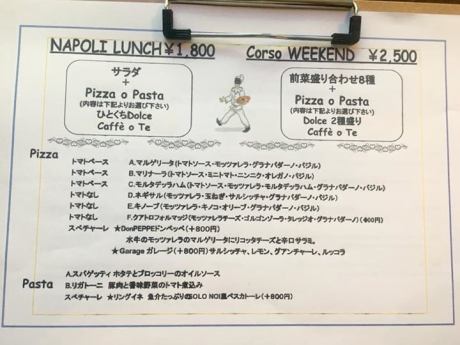 NAPOLI LUNCH ¥1,800
Corso WEEKEND ¥2,500
サラダ
+
Pizza o Pasta
(内容は下記よりお選び下さい)
ひとくちDolce
Caffè o Te
前菜盛り合わせ8種
+
Pizza o Pasta
(内容は下記よりお選び下さい)
Dolce 2種盛り
Caffè o Te
Pizza
トマトベース A.マルゲリータ(トマトソース・モッツァレラ・グラナパダーノ・バジル)
トマトベース B.マリナーラ(トマトソース・ミニトマト・ニンニク・オレガノ・バジル)
トマトベース C.モルタデッラハム(トマトソース・モッツァレラ・モルタデッラハム・グラナパダーノ・バジル)
トマトなし D.ネギサル(モッツァレラ・玉ねぎ・サルシッチャ・グラナパダーノ・バジル)
トマトなし E.キノーブ(モッツァレラ・キノコ・オリーブ・グラナパダーノ・バジル)
トマトなし F.クアトロフォルマッジ(モッツァレラチーズ・ゴルゴンゾーラ・タレッジオ・グラナパダーノ)(+400円)
スペチャーレ ★DonPEPPEドンペッペ(+800円)
水牛のモッツァレラのマルゲリータにリコッタチーズと辛口サラミ。
★Garage ガレージ(+800円)サルシッチャ、レモン、グアンチャーレ、ルッコラ
Pasta A.スパゲッティ ホタテとブロッコリーのオイルソース
B.リガトーニ 豚肉と香味野菜のトマト煮込み
スペチャーレ ★リングイネ 魚介たっぷりのSOLO NOI風ペスカトーレ(+800円)